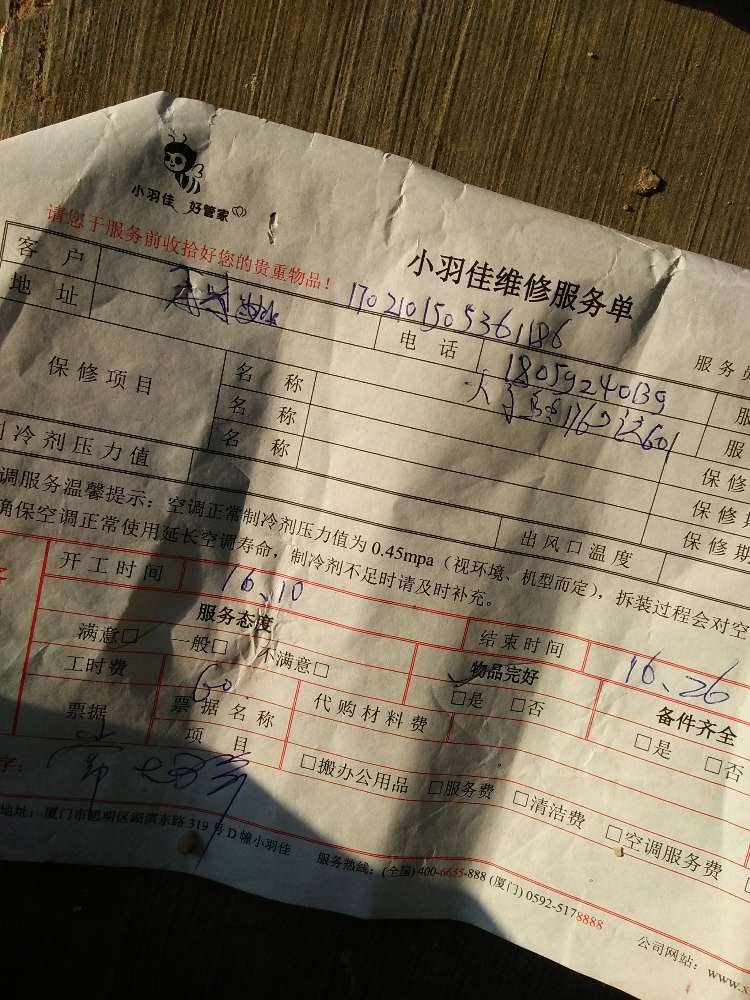 小羽佳 好管家
请您于服务前收拾好您的贵重物品！
小羽佳维修服务单
1702101505361186
客户
电话 18059240139
服务员
地址
601
服
保修项目
名称
服
名称
保修
名称
保修期
制冷剂压力值
出风口温度
保修期
调服务温馨提示：空调正常制冷剂压力值为 0.45mpa（视环境、机型而定），拆装过程会对空
确保空调正常使用延长空调寿命，制冷剂不足时请及时补充。
开工时间 16、10
结束时间 16、26
服务态度
物品完好
备件齐全
满意□ 一般□ 不满意□
□是 □否
□是 □否
工时费 60
代购材料费
票据
票据名称
项目
□搬办公用品 □服务费 □清洁费 □空调服务费
字：
地址：厦门市思明区湖滨东路 319 号 D 幢小羽佳
服务热线：(全国) 400-6655-888 (厦门) 0592-5178888
公司网站：www.x